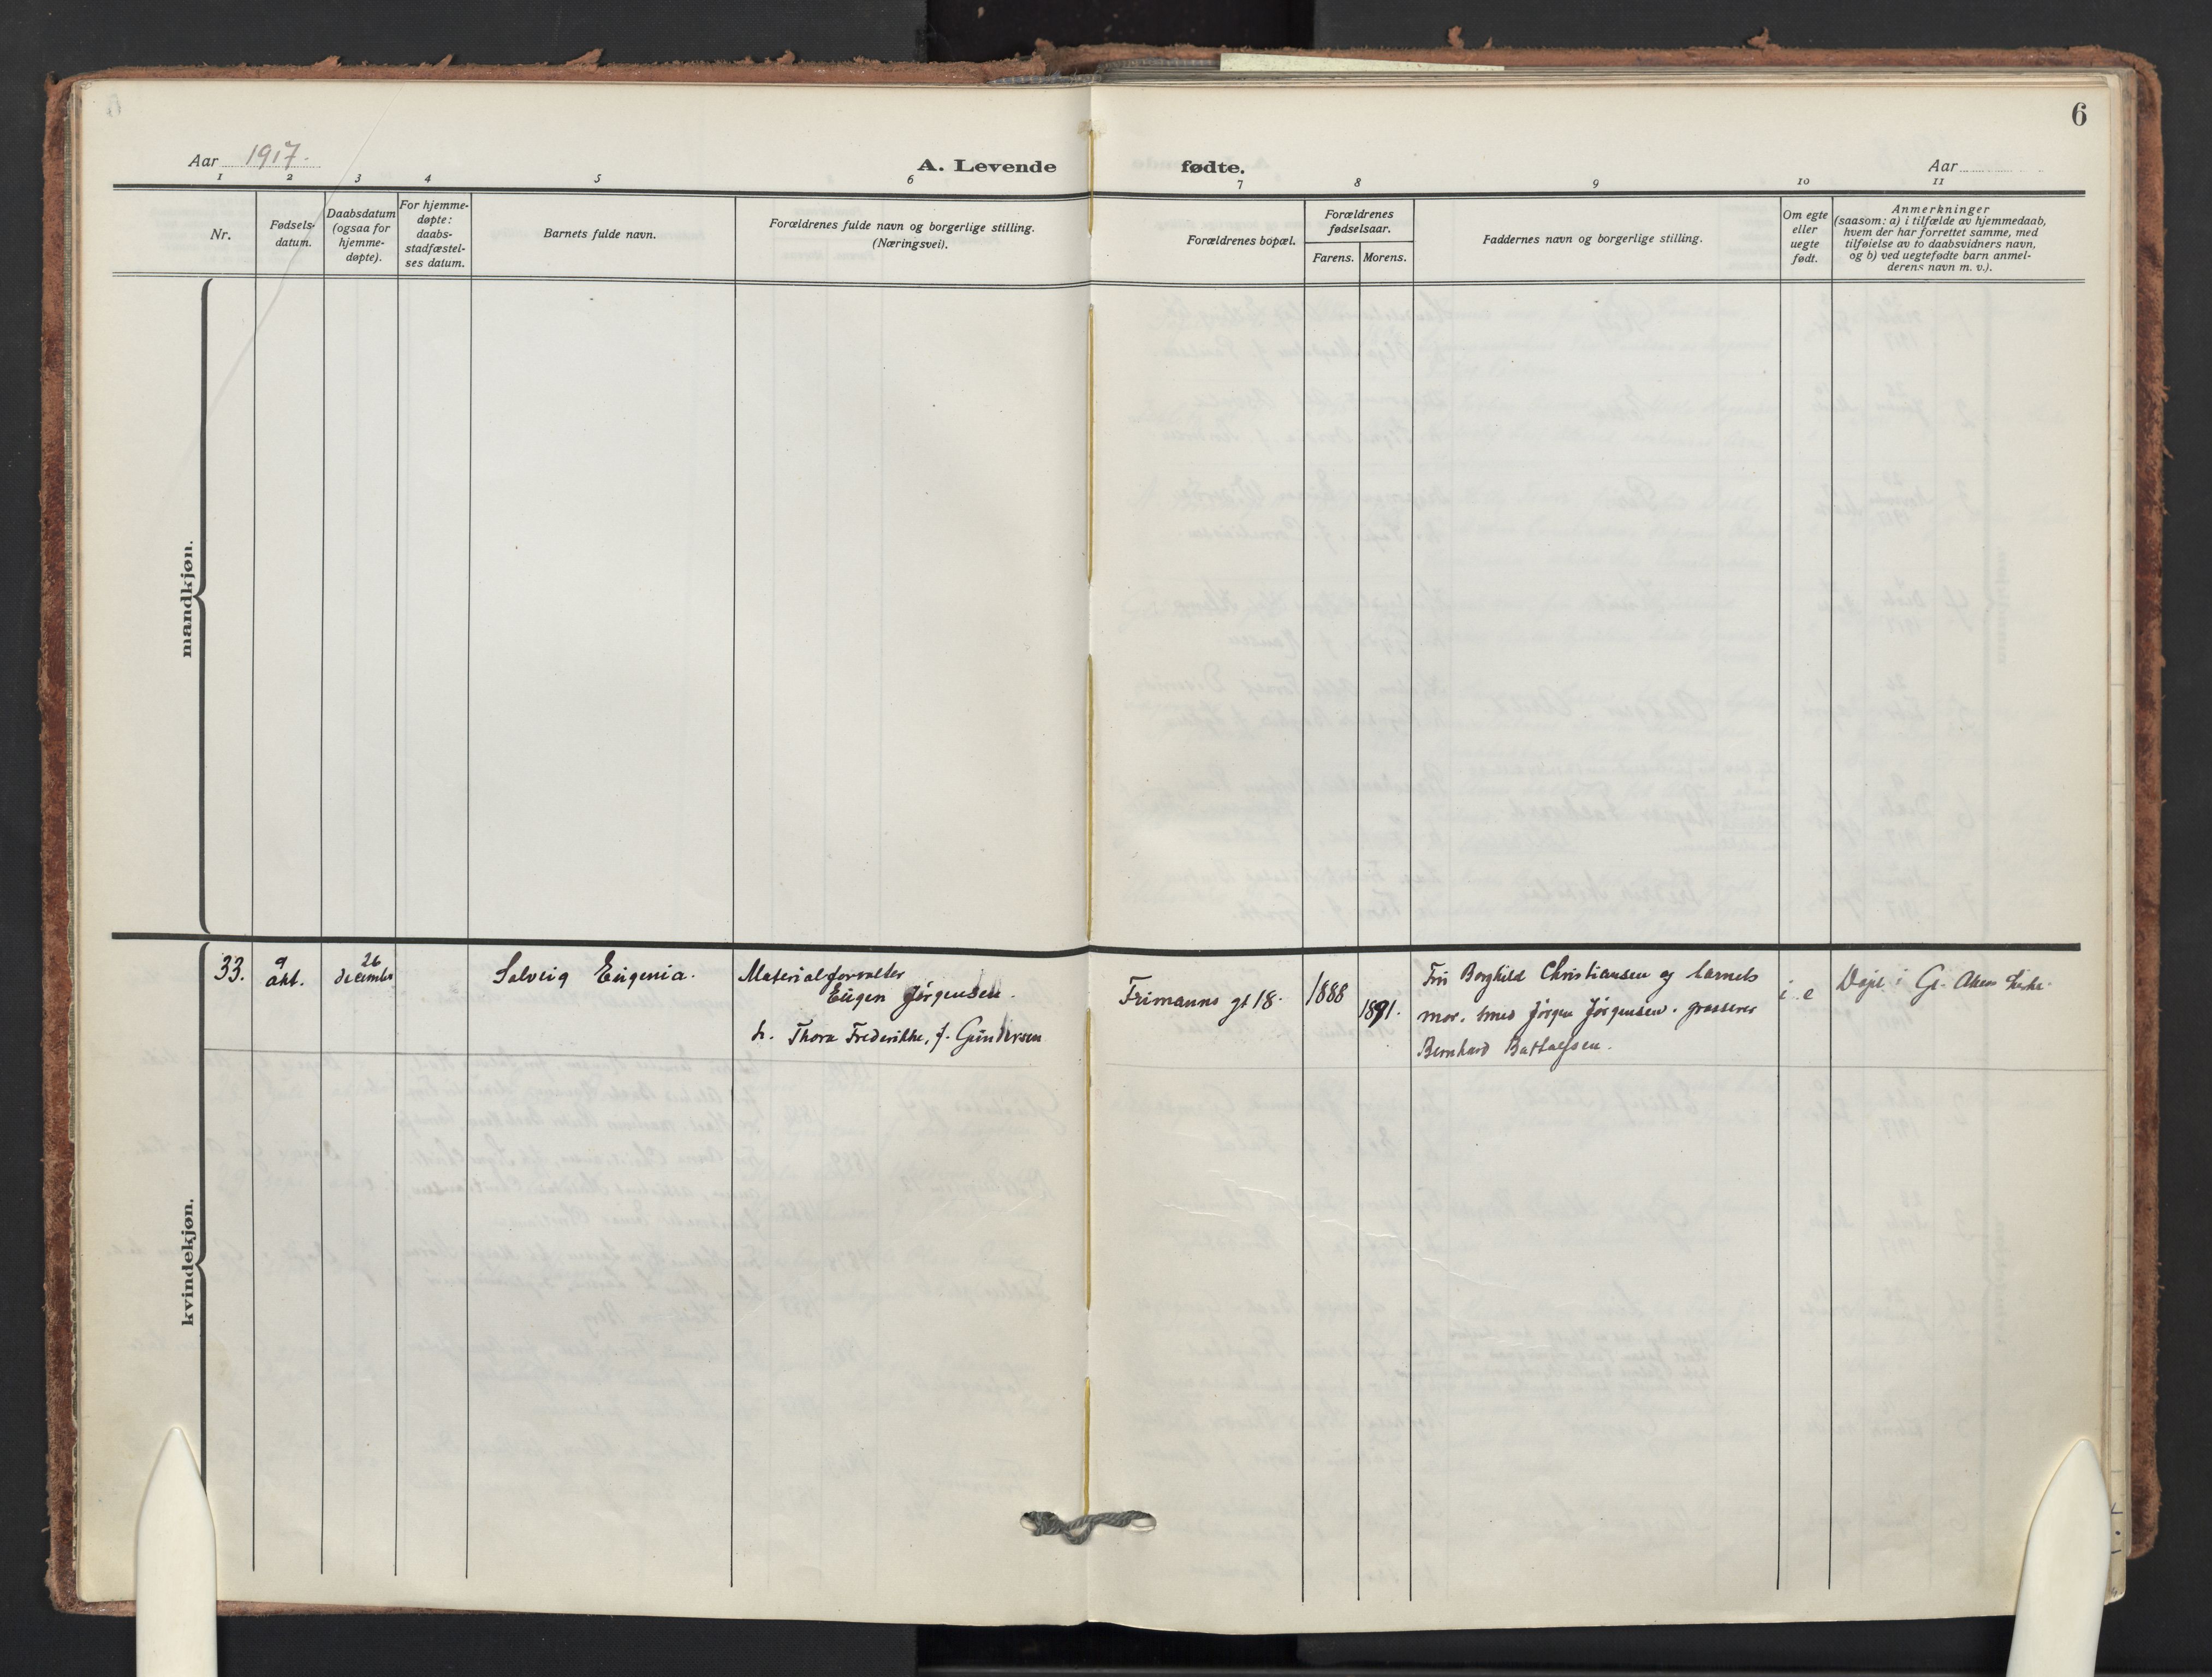 6
Aar 1917.
A. Levende fødte.
Aar
1 2 3 4 5 6 7 8 9 10 11
Nr.
Fødsels-
datum.
Daabsdatum
(ogsaa for
hjemme-
døpte).
For hjemme-
døpte:
daabs-
stadfæstel-
ses datum.
Barnets fulde navn.
Forældrenes fulde navn og borgerlige stilling.
(Næringsvei).
Forældrenes bopæl.
Forældrenes
fødselsaar.
Farens. Morens.
Faddernes navn og borgerlige stilling.
Om egte
eller
uegte
født.
Anmerkninger
(saasom: a) i tilfælde av hjemmedaab,
hvem der har forrettet samme, med
tilføielse av to daabsvidners navn,
og b) ved uegtefødte barn anmel-
derens navn m. v.).
mandkjøn.
kvindekjøn.
33.
9
okt.
26
december
Solveig Eugenia.
Materialforvalter
Eugen Jørgensen.
h. Thora Frederikke, f. Gundersen
Frimanns gt 18.
1888
1891.
Fru Borghild Christiansen og barnets
mor. smed Jørgen Jørgensen. grosserer
Bernhard
i e
Døpt i Gl. Akers kirke.